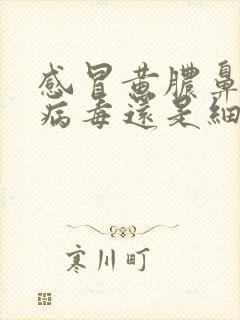 感冒黄膿鼻
病毒還是細
寒川町